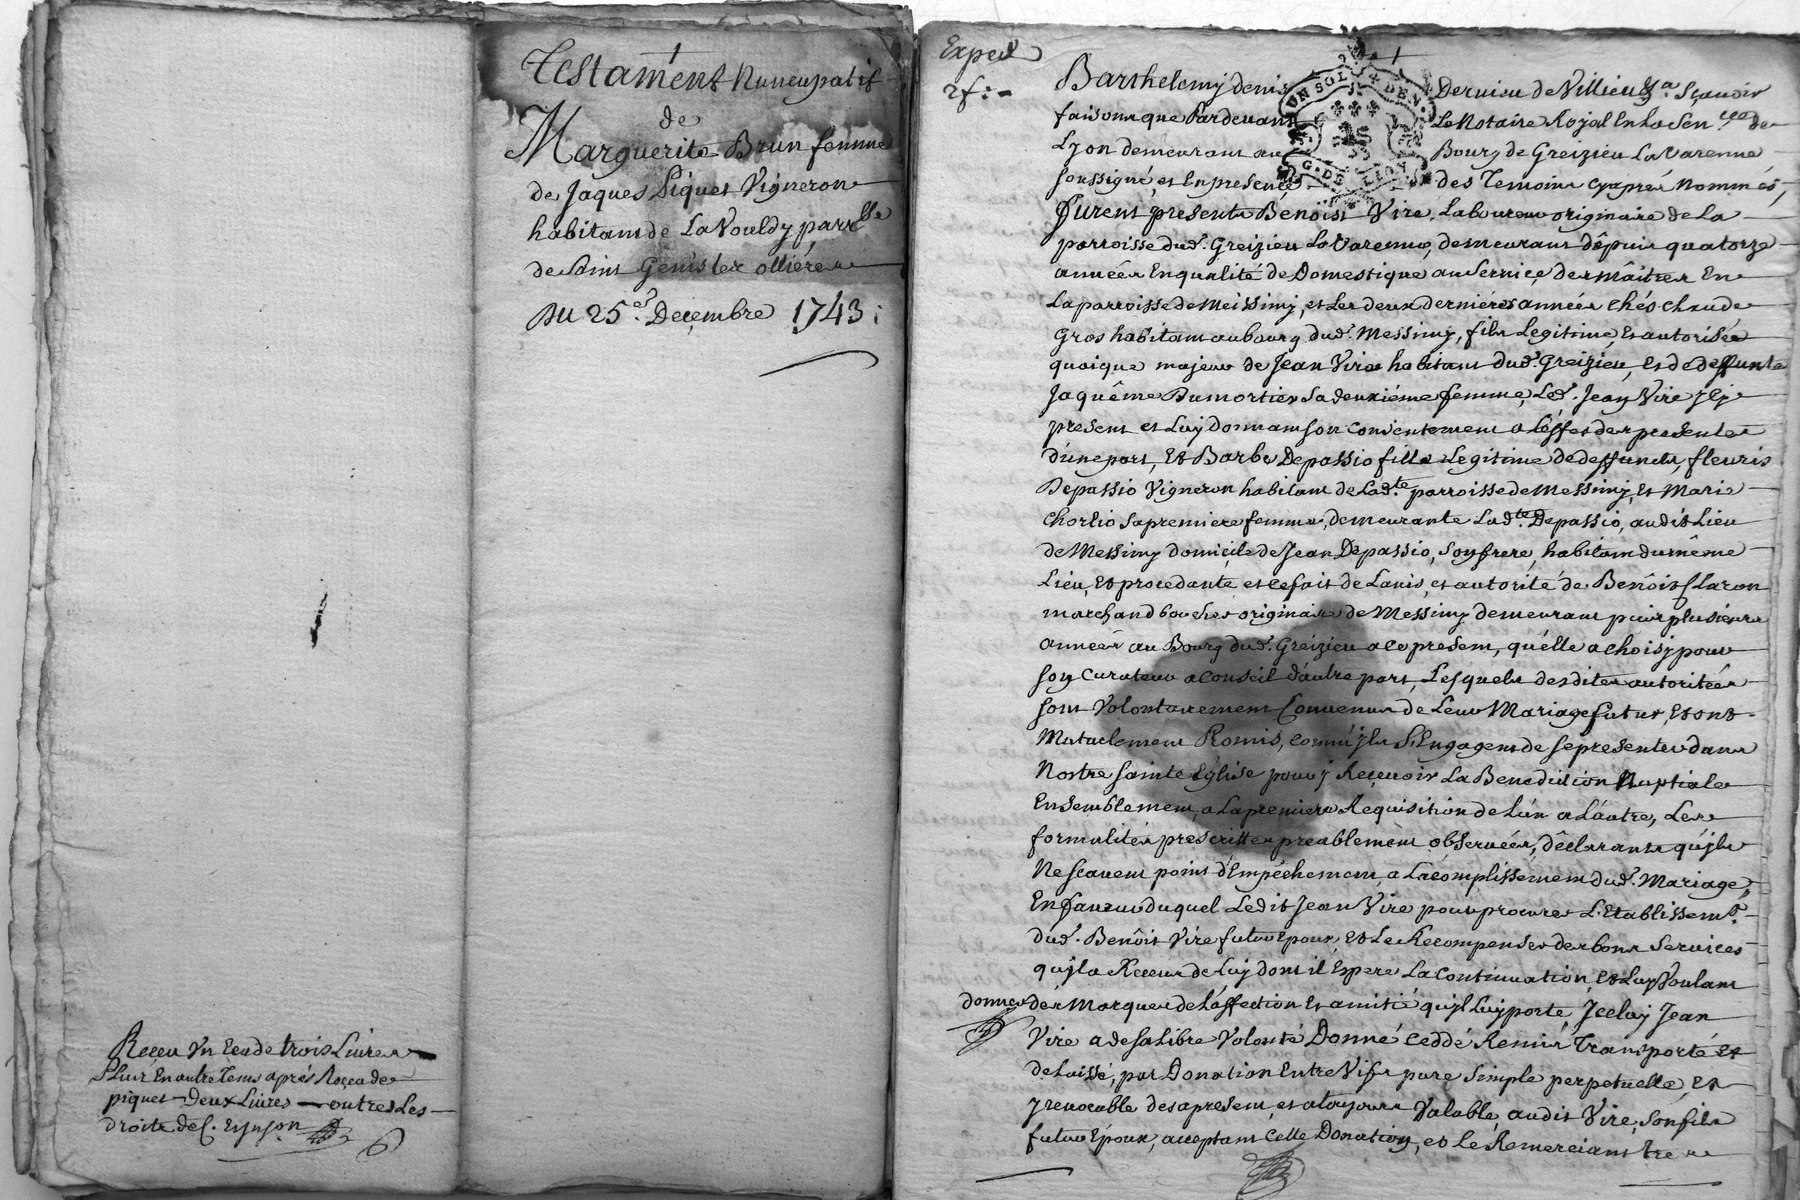 Testament Nuncupatif
de
Marguerite Brun femme
de Jaques Piquet Vigneron
habitant de La Vouldy parr.sse
de Saint Genis les ollières
Du 25e. Decembre 1743:
Receu Un Ecu de trois Livres
Plus En autre tems après Receu de
piquet deux Livres outre Les
droits de C.
Exped
2f:
Barthelemy denis Dervieu de Villieu Sçavoir
faisons que Pardevant Le Notaire Royal En la Sen.cée de
Lyon demeurant au Bourg de Greizieu La Varenne
soussigné, et En presence des Temoins cyaprés Nommés,
furent presents Benoist Vire, Laboureur originaire de La
parroisse dud. Greizieu La Varenne, demeurant dépuis quatorze
années En qualité de Domestique au Service des Mâitres En
La parroisse de Meissimy, et Les deux derniéres années chés claude
Gros habitant au bourg dud. Messimy, fils Legitime, Et autorisé
quoique majeur de Jean Vire habitant dud. Greizieu, et de deffunte
Jaquême Dumortier Sa deuxiéme femme, Led. Jean Vire jcy
present et Luy donnant son consentement a L'effet des presentes
d'une part, Et Barbe Depassio fille Legitime de deffunts, fleuris
Depassio Vigneron habitant de Lad.te parroisse de Messimy, et Marie
Chorlio sa premiere femme, demeurante Lad.te Depassio, audit Lieu
de Messimy domicile de Jean Depassio, Son frere, habitant du même
Lieu, Et procedante et ce fait de L'avis, et autorité de Benôist Claron
marchand boucher originaire de Messimy demeurant puis plusieurs
années au Bourg dud. Greizieu a ce present, qu'elle a choisy pour
son curateur a conseil d'autre part, Lesquels desdites autoritées
sont Volontairement Convenus de Leur Mariage futur, Et ont
Mutuelement Promis, comm'jls S'Engagent de se presenter dans
Nostre Sainte Eglise pour y Recevoir La Benediction Nuptiale
Ensemblement, a La premiere Requisition de L'un a L'autre, Les
formalités prescrittes preablement observées, déclarants qu'jls
Ne scavent point d'Empéchement a L'acomplissement dud. Mariage,
En faveur duquel Ledit Jean Vire pour procurer L'Etablissem.t
dud. Benôit Vire futur Epoux, Et Le Recompenser des bons Services
qu'jl a Receus de Luy dont il Espere La Continuation, Et Luy Voulant
donner des Marques de L'affection Et amitié qu'jl Luy porte, Jceluy Jean
Vire a de sa Libre Volonté Donné Ceddé Remis Transporté Et
Delaissé, par Donation Entre Vifs pure simple perpetuelle, Et
jrrevocable des a present, et a toujours Valable audit Vire, Son fils
futur Epoux, acceptant Cette Donation, et Le Remerciant tres